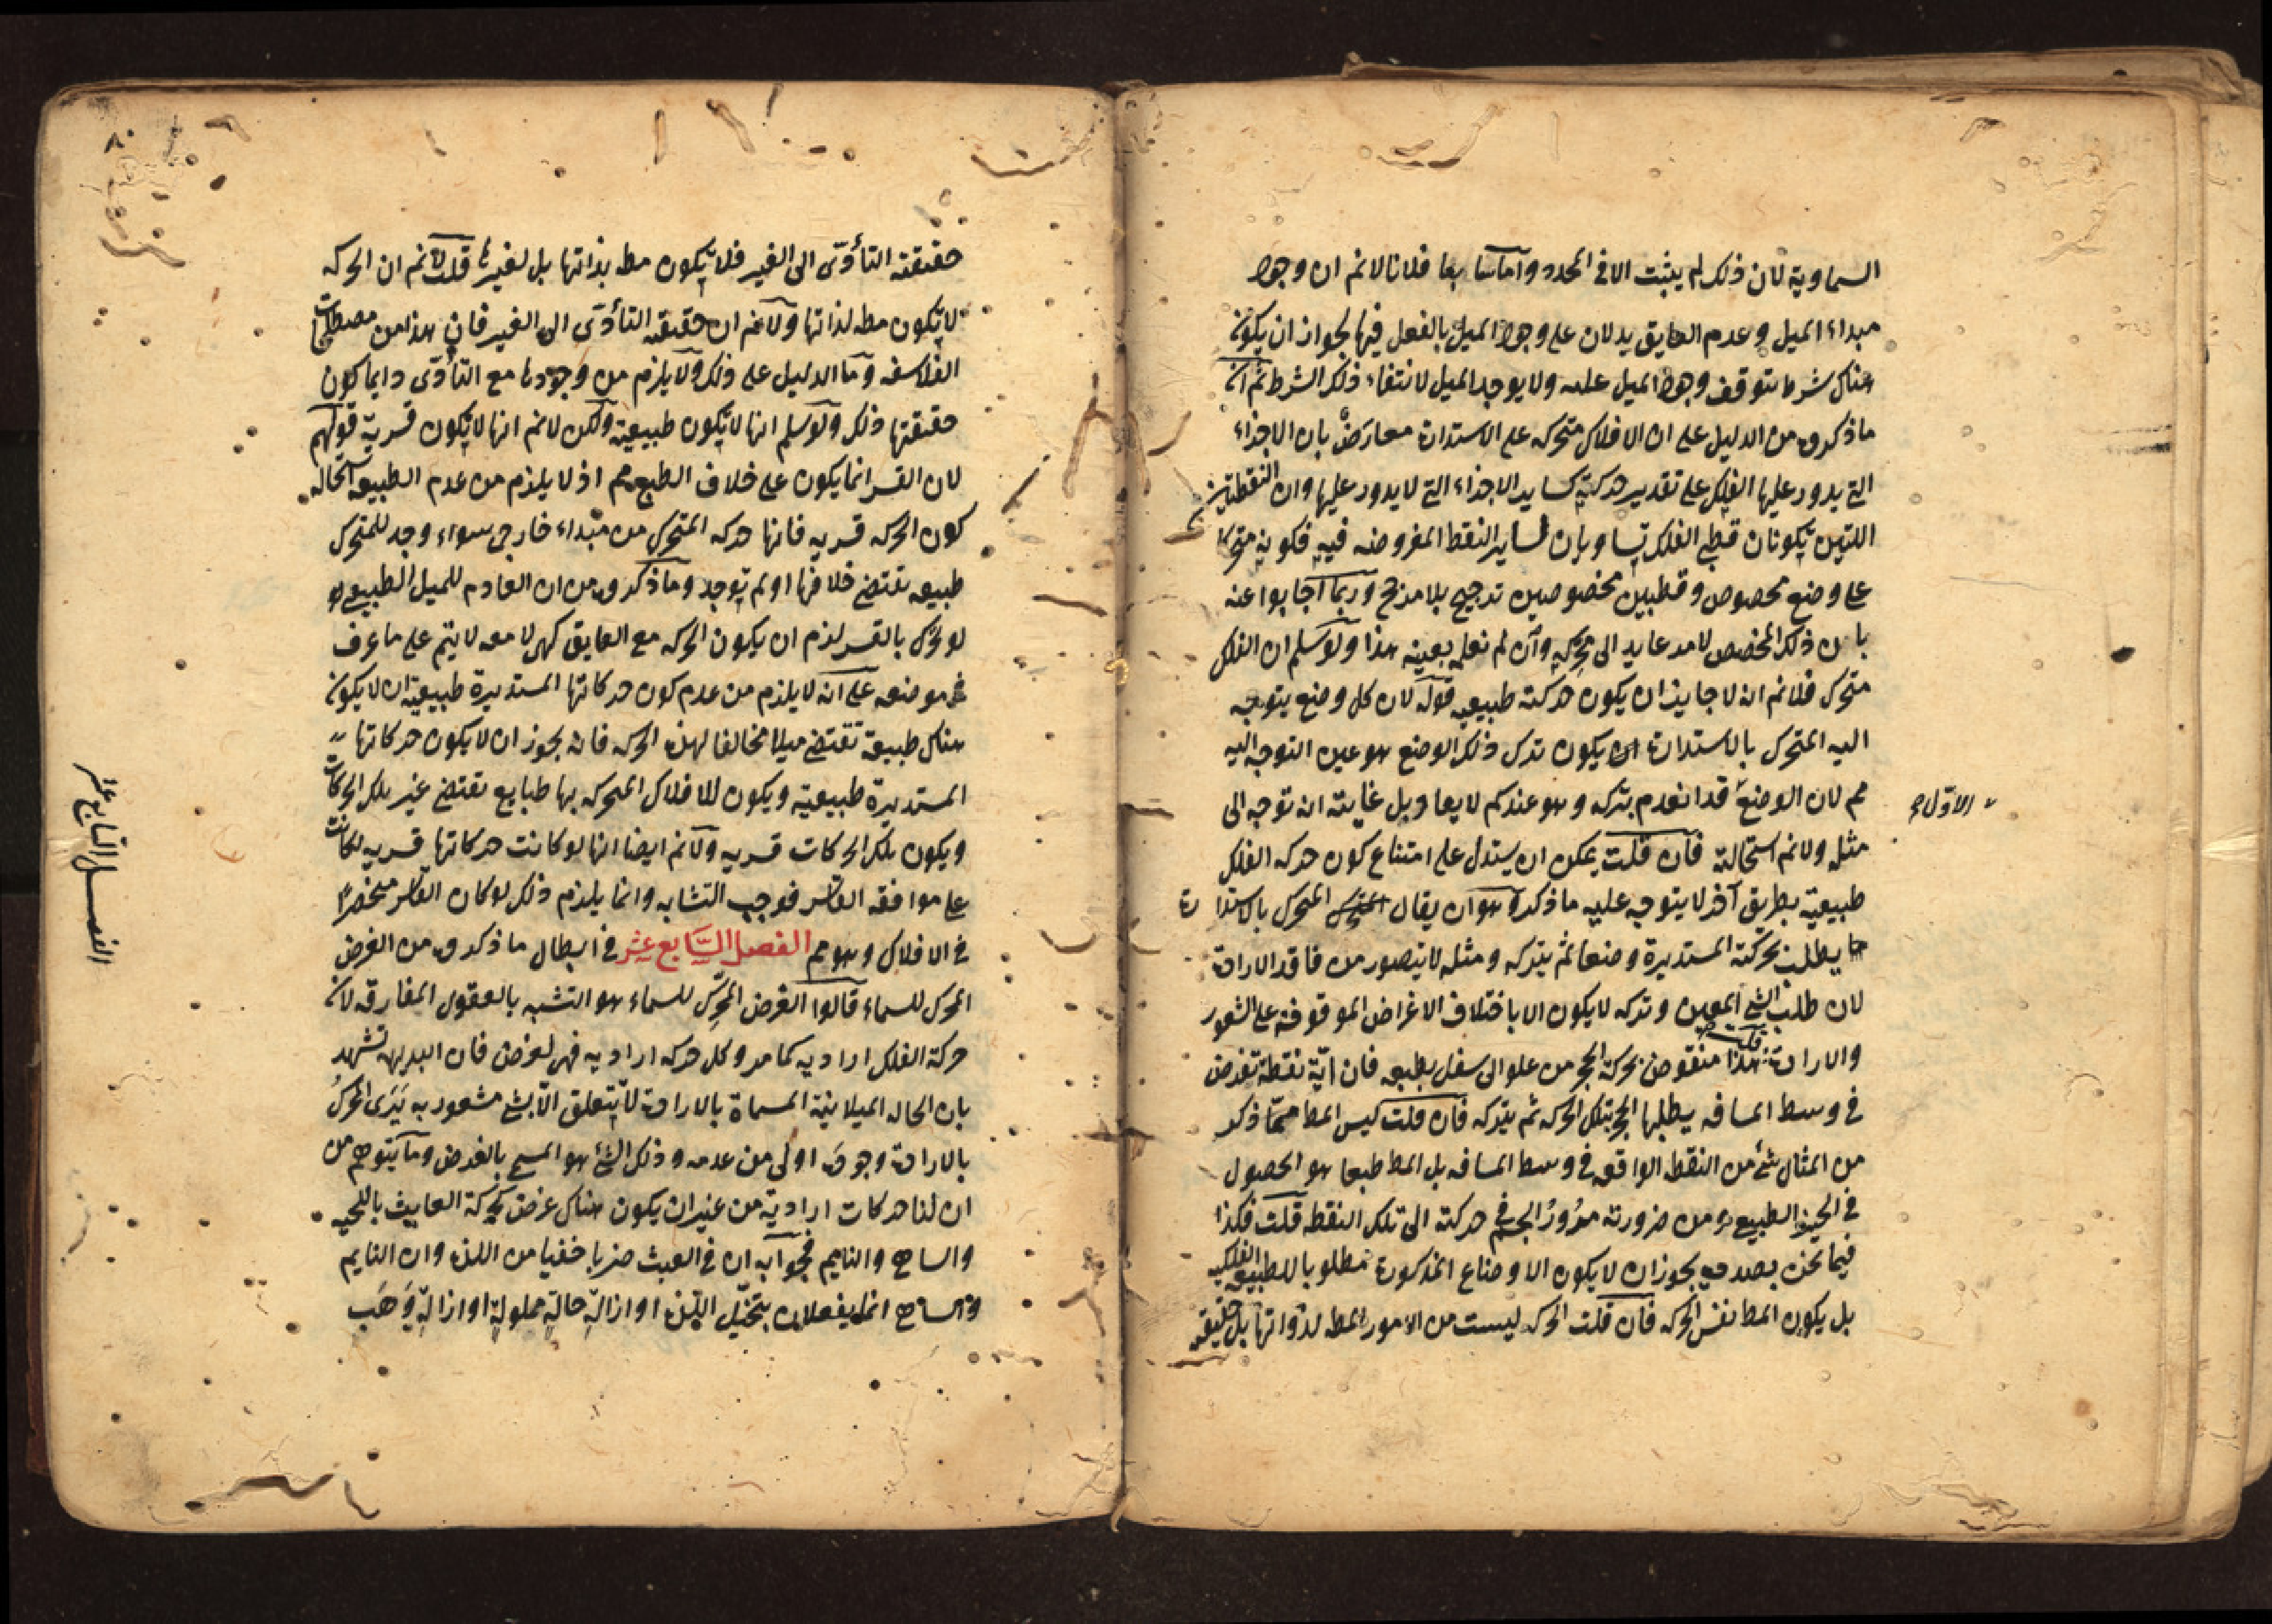 السماوية لان ذلك لم يثبت الا فى المحدد واما سابعا فلانا لانم ان وجود
مبداء الميل وعدم العايق يدلان على وجود الميل بالفعل فيها لجواز ان يكون
هناك شرط يتوقف وجود الميل عليه ولا يوجد الميل لانتفاء ذلك الشرط ثم انه
ما ذكروه من الدليل على ان الافلاك متحركه على الاستدارة معارض بان الاجزاء
التى يدور عليها الفلك على تقدير حركته كساير الاجزاء التى لا يدور عليها وان النقطتين
اللتين يكونان قطبى الفلك تساويان لساير النقط المفروضه فيه فكونه متحركا
على وضع مخصوص وقطبين مخصوصين ترجيح بلا مرجح وربما اجابوا عنه
بان ذلك المخصص لامر عايد الى محركه وان لم نعلم بعينه هذا ولو سلم ان الفلك
متحرك فلانم انه لا جايز ان يكون حركته طبيعيه قوله لان كل وضع يتوجه
اليه المتحرك بالاستدارة يكون ترك ذلك الوضع هو عين التوجه اليه
مم لان الوضع قد انعدم بتركه وهو عندكم لا يعاد بل غايته ان توجه الى
الاول
مثله ولانم استحالته فان قلت يمكن ان يستدل على امتناع كون حركه الفلك
طبيعية بطريق آخر لا يتوجه عليه ما ذكر وهو ان يقال المتحرك بالاستدارة
يطلب بحركته المستديرة وضعا ثم يتركه ومثله لا يتصور من فاقد الارادة
لان طلب الشئ المعين وتركه لا يكون الا باختلاف الاغراض الموقوفة على الشعور
والارادة قلت هذا منقوض بحركة الحجر من علو الى سفل بطبعه فان اية نقطة تفرض
فى وسط المسافه يطلبها الحجر بتلك الحركه ثم يتركه فان قلت ليس المط مما ذكر
من المثال شئ من النقط الواقعه فى وسط المسافه بل المط طبعا هو الحصول
فى الحيز الطبيعى ومن ضرورته مرور الجسم فى حركته الى تلك النقطه قلت فكذا
فيما نحن بصدده يجوز ان لا يكون الاوضاع المذكورة مطلوبا للطبيعه الفلكيه
بل يكون المط نفس الحركه فان قلت الحركه ليست من الامور المط لذواتها بل حقيقته
٨٠
حقيقته التأدّى الى الغير فلا يكون مط بذاتها بل لغيرها قلت لانم ان الحركه
لا يكون مط لذاتها ولانم ان حقيقته التأدّى الى الغير فان هذا من مصطلحات
الفلاسفه وما الدليل على ذلك ولا يلزم من وجودها مع التأدّى دايما كون
حقيقتها ذلك ولو سلم انها لا يكون طبيعية ولكن لانم انها لا يكون قسرية قولهم
لان القسر انما يكون على خلاف الطبع مم اذ لا يلزم من عدم الطبيعه استحاله
كون الحركه قسريه فانها حركه المتحرك من مبداء خارجى سواء وجد للمتحرك
طبيعه تقتضى خلافها او لم توجد وما ذكروه من ان العادم للميل الطبيعى
لو تحرك بالقسر لزم ان يكون الحركه مع العايق كهى لا معه لا يتم على ما عرف
فى موضعه على انه لا يلزم من عدم كون حركاتها المستديرة طبيعية ان لا يكون
هناك طبيعة تقتضى ميلا مخالفا لهذه الحركه فانه يجوز ان لا يكون حركاتها
المستديرة طبيعية ويكون للافلاك المتحركه بها طبايع تقتضى غير تلك الحركات
ويكون تلك الحركات قسريه ولانم ايضا انها لو كانت حركاتها قسريه لكانت
على موافقه القاسر فوجب التشابه وانما يلزم ذلك لو كان القاسر منحصرا
فى الافلاك وهو مم الفصل السّابع عشر فى ابطال ما ذكروه من الغرض
المحرك للسماء قالوا الغرض المحرّك للسماء هو التشبه بالعقول المفارقه لان
حركة الفلك اراديه كما مر وكل حركه اراديه فهى لغرض فان البديهه تشهد
بان الحاله الميلانية المسماة بالارادة لا يتعلق الا بشئ مشعور به يرى المحرك
بالارادة وجوده اولى من عدمه وذلك الشئ هو المسمى بالغرض وما يتوهم من
ان لنا حركات ارادية من غير ان يكون هناك غرض كحركة العابث باللحيه
والساهى والنايم فجوابه ان فى العبث ضربا خفيا من اللذه وان النايم
والساهى انما يفعلان بتخيّل اللذة او ازالة حالة مملولة او ازالة وصب
الفصل السابع عشر